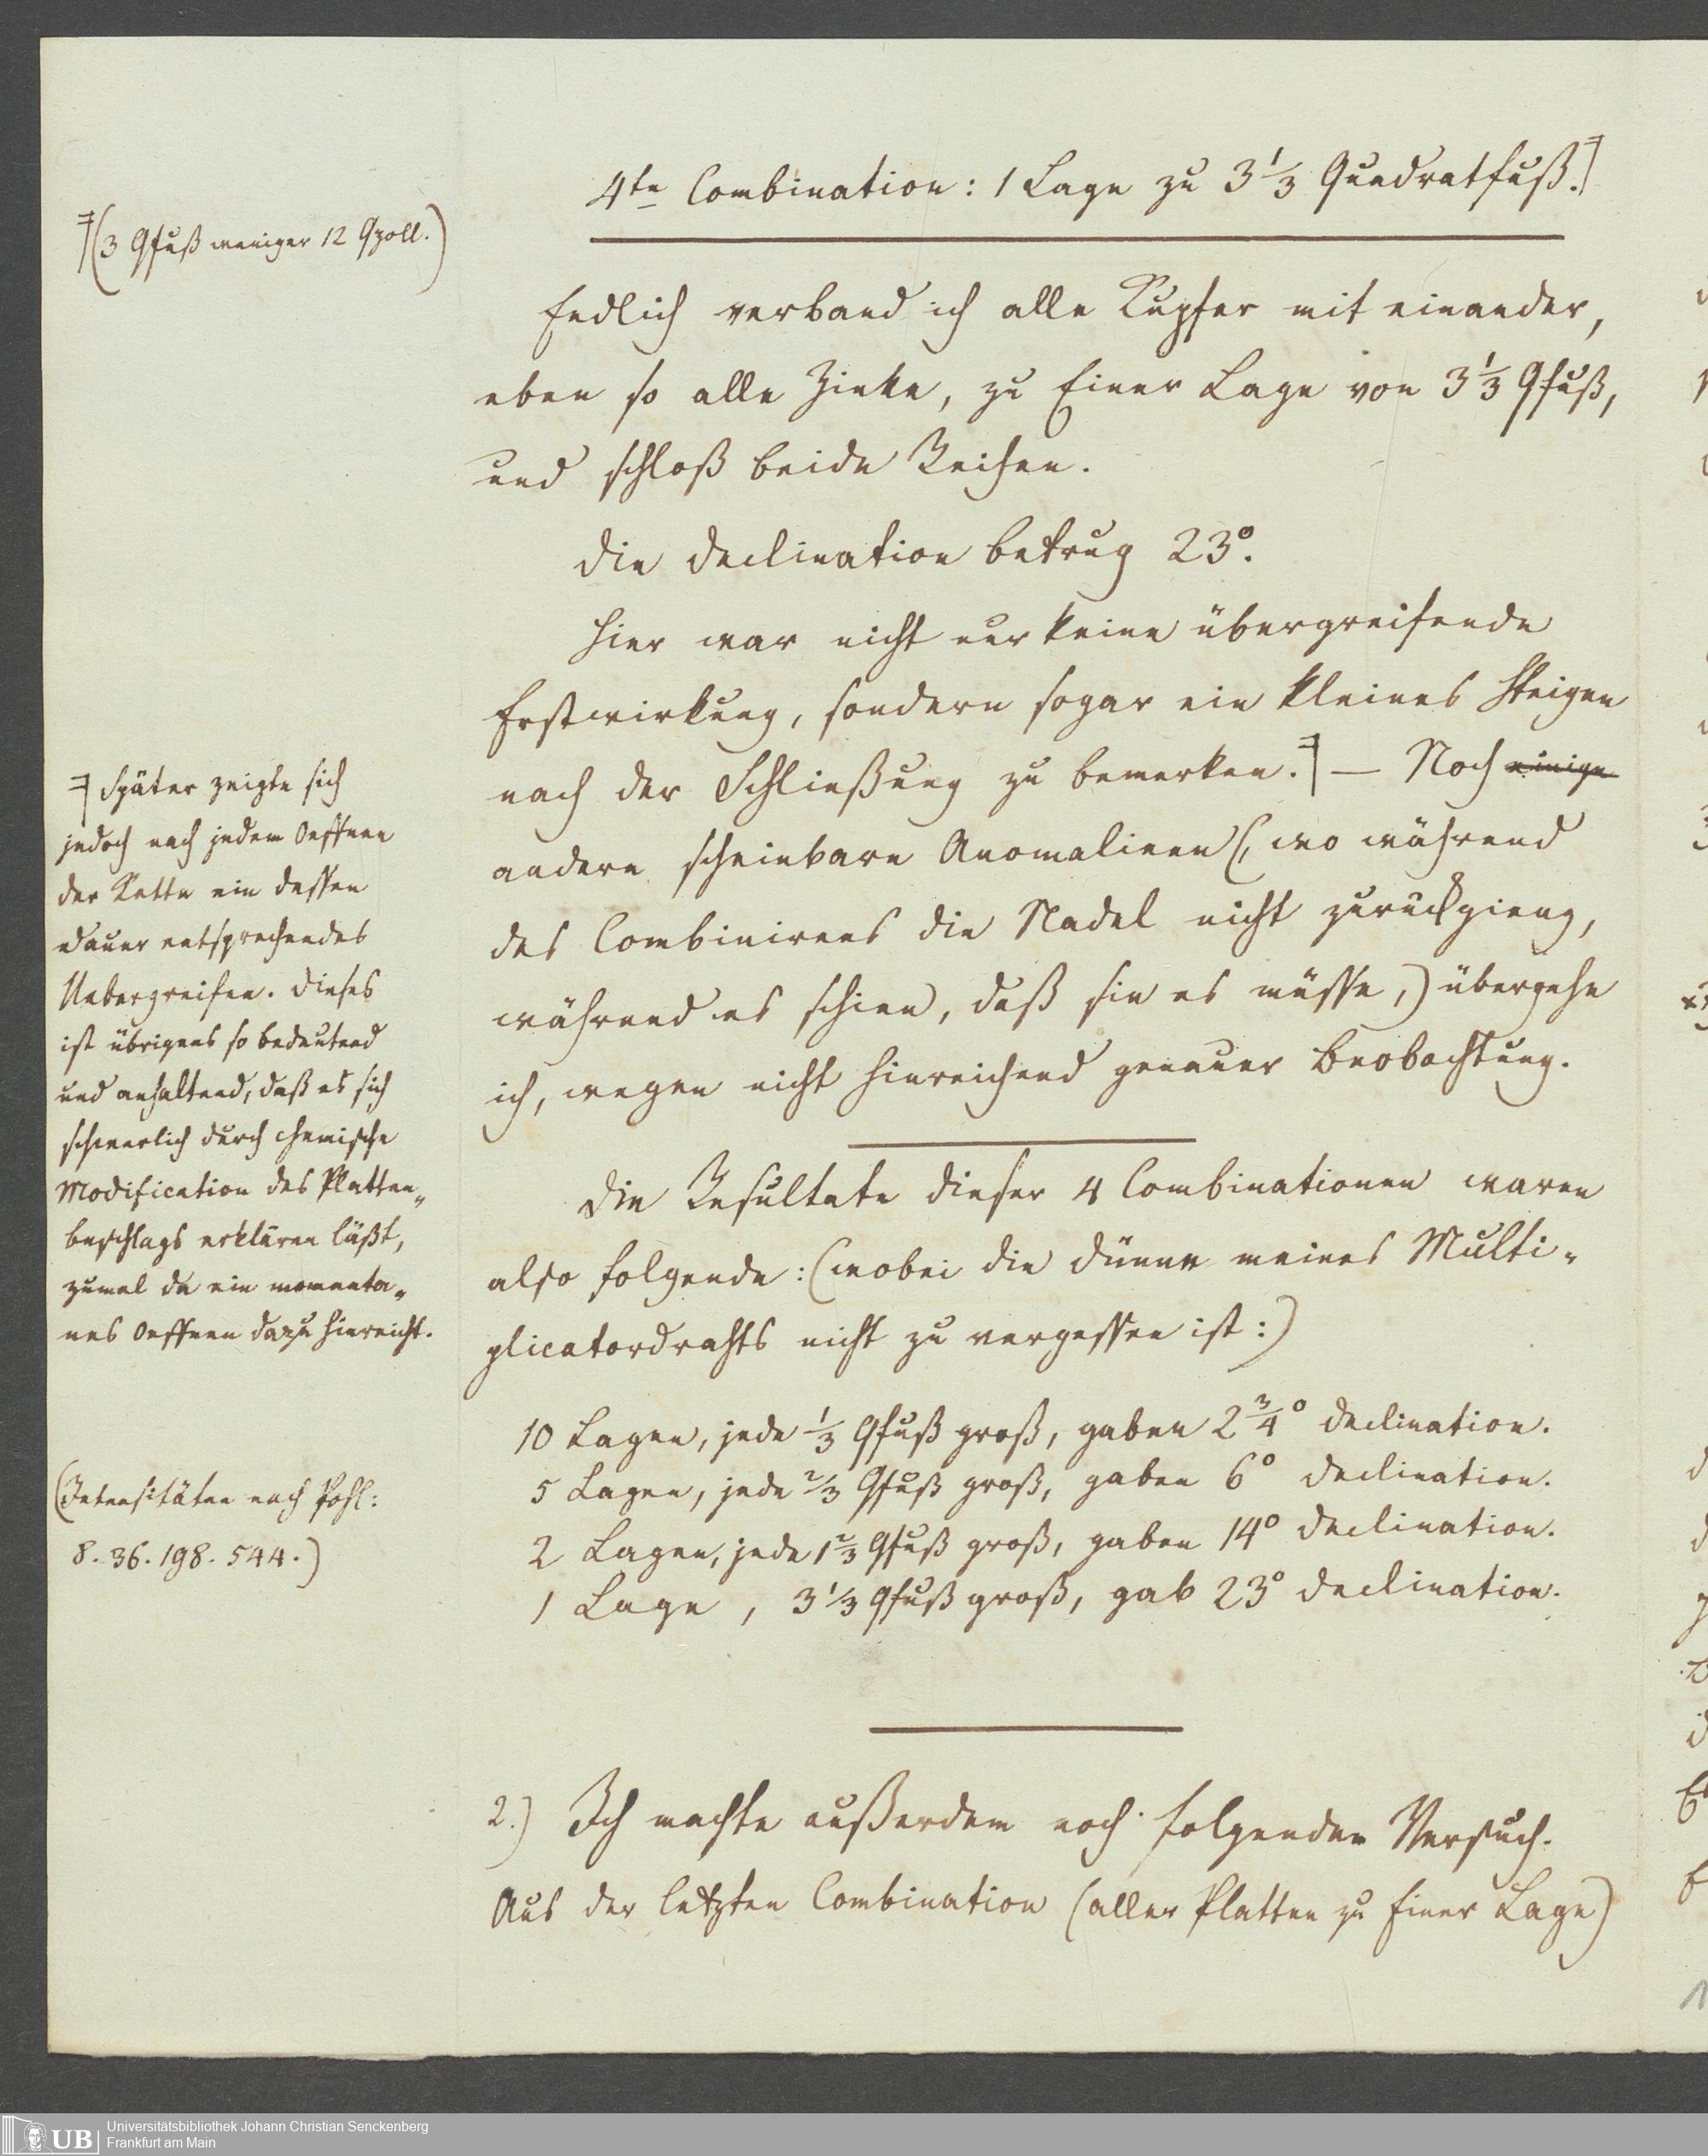 4te Combination: 1 Lage zu 3 1/3 Quadratfuß.
(3 Qfuß weniger 12 Qzoll.)
Endlich verband ich alle Kupfer mit einander,
eben so alle Zinke, zu Einer Lage von 3 1/3 Qfuß,
und schloß beide Reihen.
Die Declination betrug 23°.
Hier war nicht nur keine übergreifende
Erstwirkung, sondern sogar ein kleines Steigen
nach der Schließung zu bemerken. — Noch einige
andere scheinbare Anomalieen (, wo während
des Combinirens die Nadel nicht zurückgieng,
während es schien, daß sie es müsse,) übergehe
ich, wegen nicht hinreichend genauer Beobachtung.
Später zeigte sich
jedoch nach jedem Oeffnen
der Kette ein dessen
Dauer entsprechendes
Uebergreifen. Dieses
ist übrigens so bedeutend
und anhaltend, daß es sich
schwerlich durch chemische
Modification des Platten-
beschlags erklären läßt,
zumal da ein momenta-
nes Oeffnen dazu hinreicht.
Die Resultate dieser 4 Combinationen waren
also folgende: (wobei die Dünne meines Multi-
plicatordrahts nicht zu vergessen ist:)
10 Lagen, jede 1/3 Qfuß groß, gaben 2 3/4° Declination.
5 Lagen, jede 2/3 Qfuß groß, gaben 6° Declination.
2 Lagen, jede 1 2/3 Qfuß groß, gaben 14° Declination.
1 Lage, 3 1/3 Qfuß groß, gab 23° Declination.
(Intensitäten nach Pohl:
8. 36. 198. 544.)
2.) Ich machte außerdem noch folgenden Versuch.
Aus der letzten Combination (aller Platten zu Einer Lage)
UB Universitätsbibliothek Johann Christian Senckenberg
Frankfurt am Main